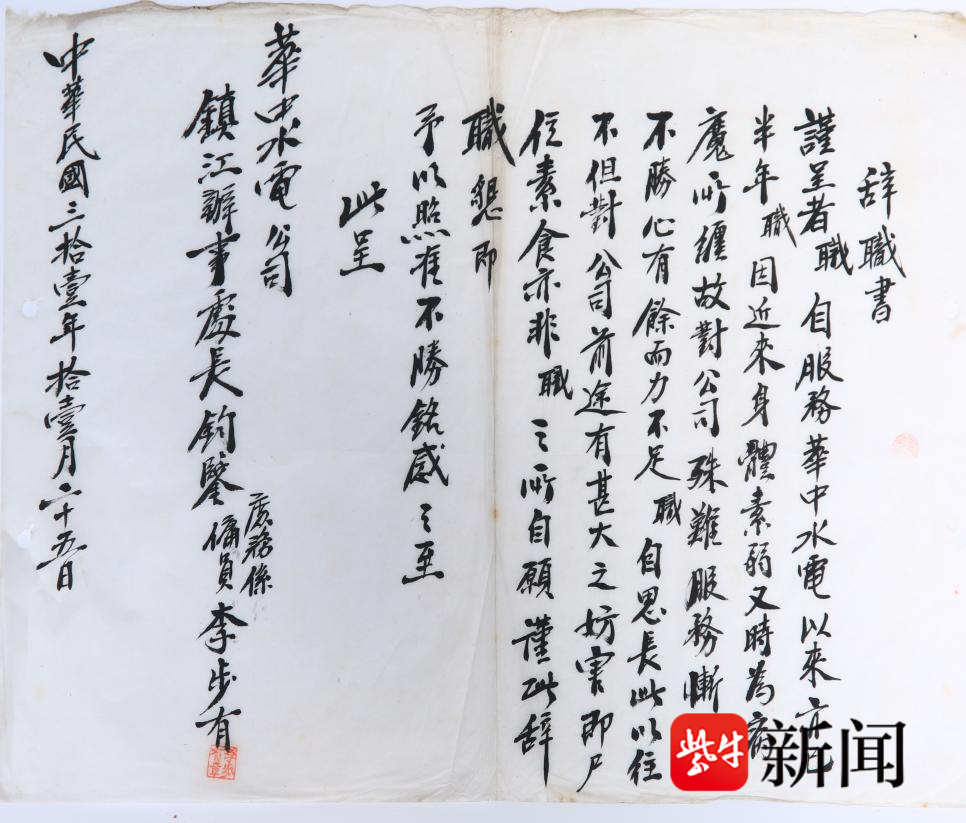 辞職書
謹呈者職自服務華中水電以來亦已
半年職因近來身體素弱又時為病
魔所纏故對公司殊難服務慚
不勝心有餘而力不足職自思長此以往
不但對公司前途有甚大之妨害即尸
位素食亦非職之所自願謹此辞
職懇即
予以照准不勝銘感之至
此呈
華中水電公司
鎮江辦事處長鈞鑒
庶務係
傭員李步有
中華民國三拾壹年拾壹月二十五日
紫牛新闻